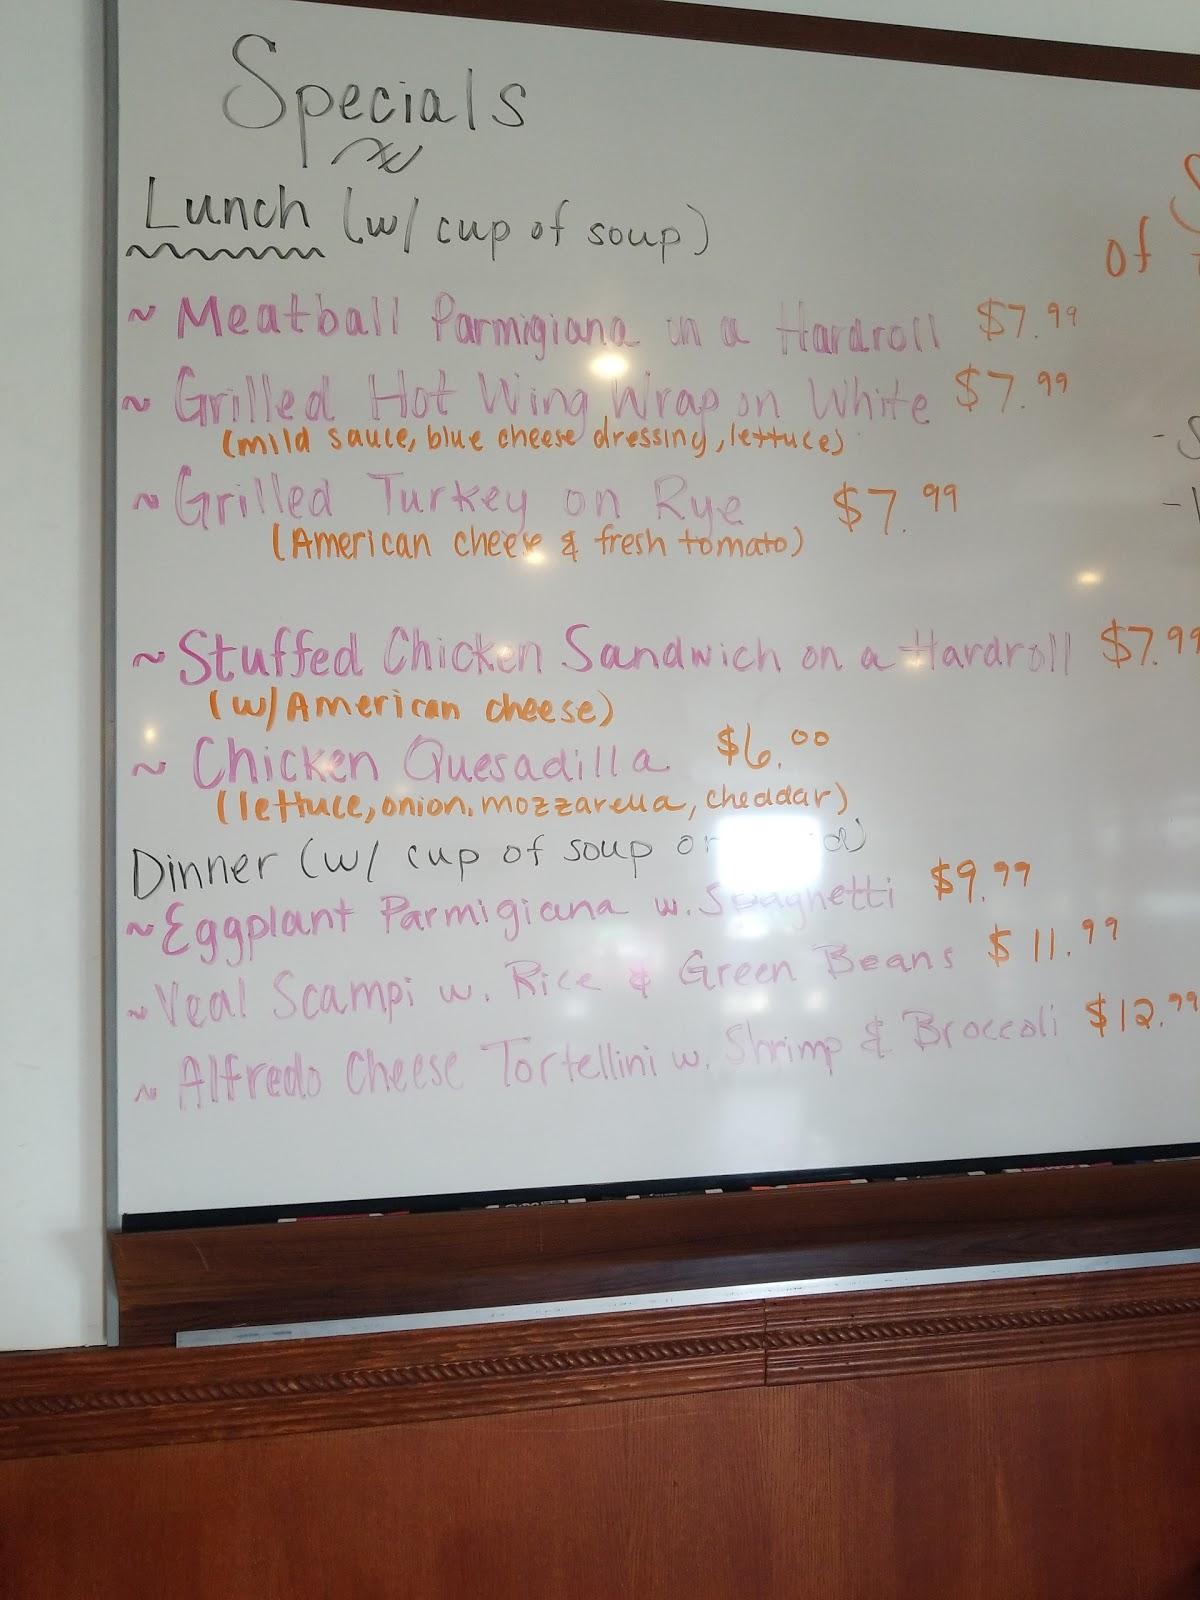 Specials
Lunch (w/ cup of soup)
~ Meatball Parmigiana on a Hardroll $7.99
~ Grilled Hot Wing Wrap on White $7.99
(mild sauce, blue cheese dressing, lettuce)
~ Grilled Turkey on Rye $7.99
(American cheese & fresh tomato)
~ Stuffed Chicken Sandwich on a Hardroll $7.99
(w/ American cheese)
~ Chicken Quesadilla $6.00
(lettuce, onion, mozzarella, cheddar)
Dinner (w/ cup of soup or
~ Eggplant Parmigiana w. Spaghetti $9.99
~ Veal Scampi w. Rice & Green Beans $11.99
~ Alfredo Cheese Tortellini w. Shrimp & Broccoli $12.99
of